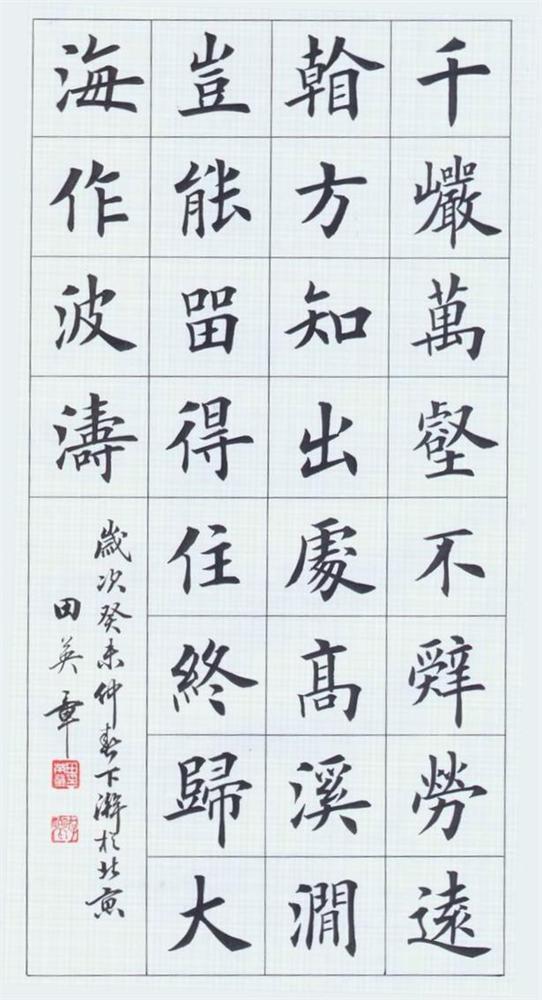 千巖萬壑不辭勞遠
看方知出處髙溪澗
豈能留得住終歸大
海作波濤
歲次癸未仲春下澣於北京
田英章